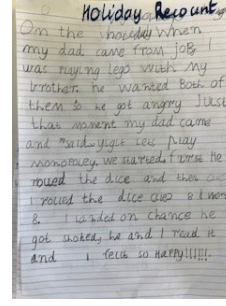 Holiday Recount
On the holiday when
my dad came from job
was playing lego with my
brother. he wanted Both of
them so he got angry Just
that moment my dad came
and said yigit lets play
monopoley. we started, first He
rolled the dice and then
I rolled the dice
8. I landed on chance he
got shoked, he and I read it
and I felt so Happy!!!!!!